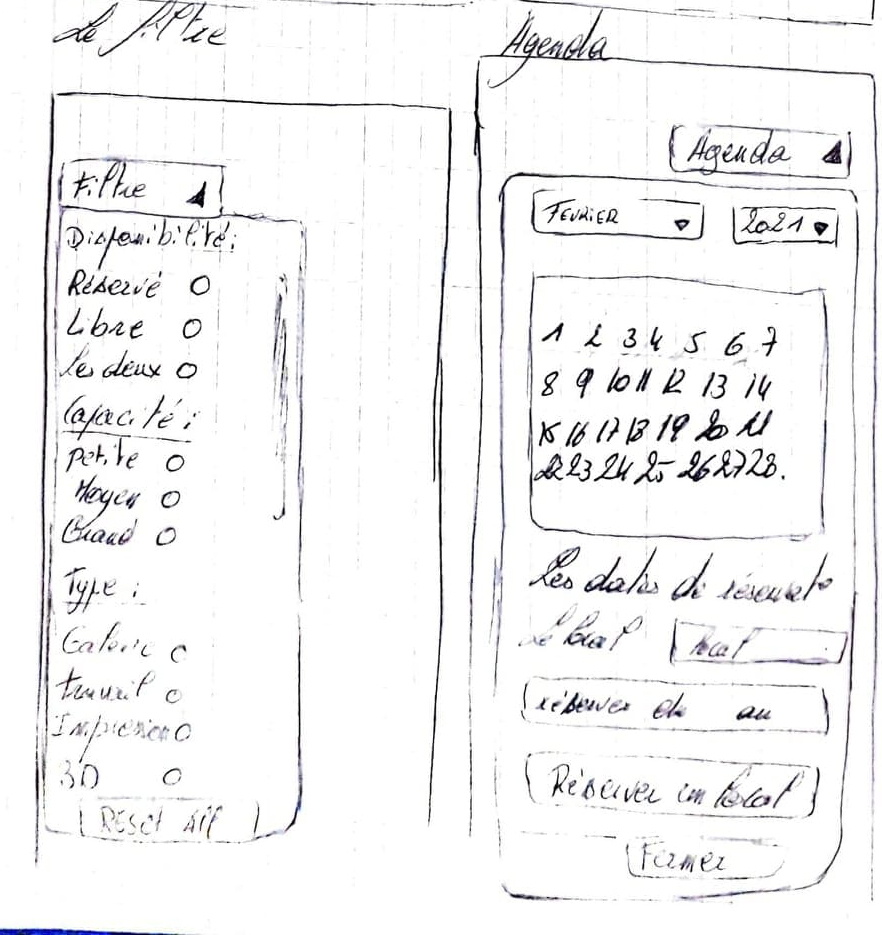 Le filtre
Filtre
Disponibilité :
Réservé
Libre
Les deux
Capacité :
petite
Moyen
Grand
Type :
Galerie
travail
Impression
3D
Reset All
Agenda
Agenda
FEVRIER
2021
1 2 3 4 5 6 7
8 9 10 11 12 13 14
15 16 17 18 19 20 21
22 23 24 25 26 27 28.
Les dates de réservat°
Le local
local
réserver de au
Réserver un local
Fermer